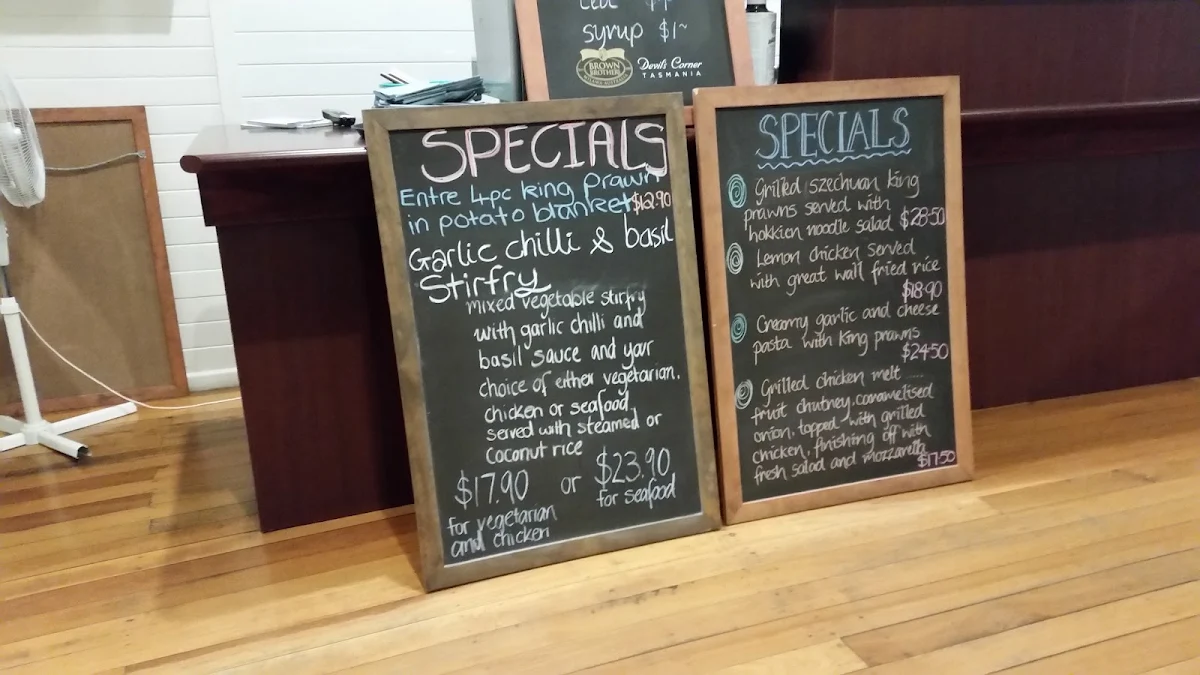 syrup $1~
BROWN
BROTHERS
Devil's Corner
TASMANIA
SPECIALS
Entre 4pc king prawn
in potato blanket $12.90
Garlic chilli & basil
Stirfry
mixed vegetable stirfry
with garlic chilli and
basil sauce and your
choice of either vegetarian,
chicken or seafood
served with steamed or
coconut rice
$17.90 or $23.90
for vegetarian
and chicken
for seafood
SPECIALS
Grilled szechuan king
prawns served with
hokkien noodle salad $28.50
Lemon chicken served
with great wall fried rice
$18.90
Creamy garlic and cheese
pasta with king prawns
$24.50
Grilled chicken melt
fruit chutney, caramelised
onion, topped with grilled
chicken, finishing off with
fresh salad and mozzarella
$17.50